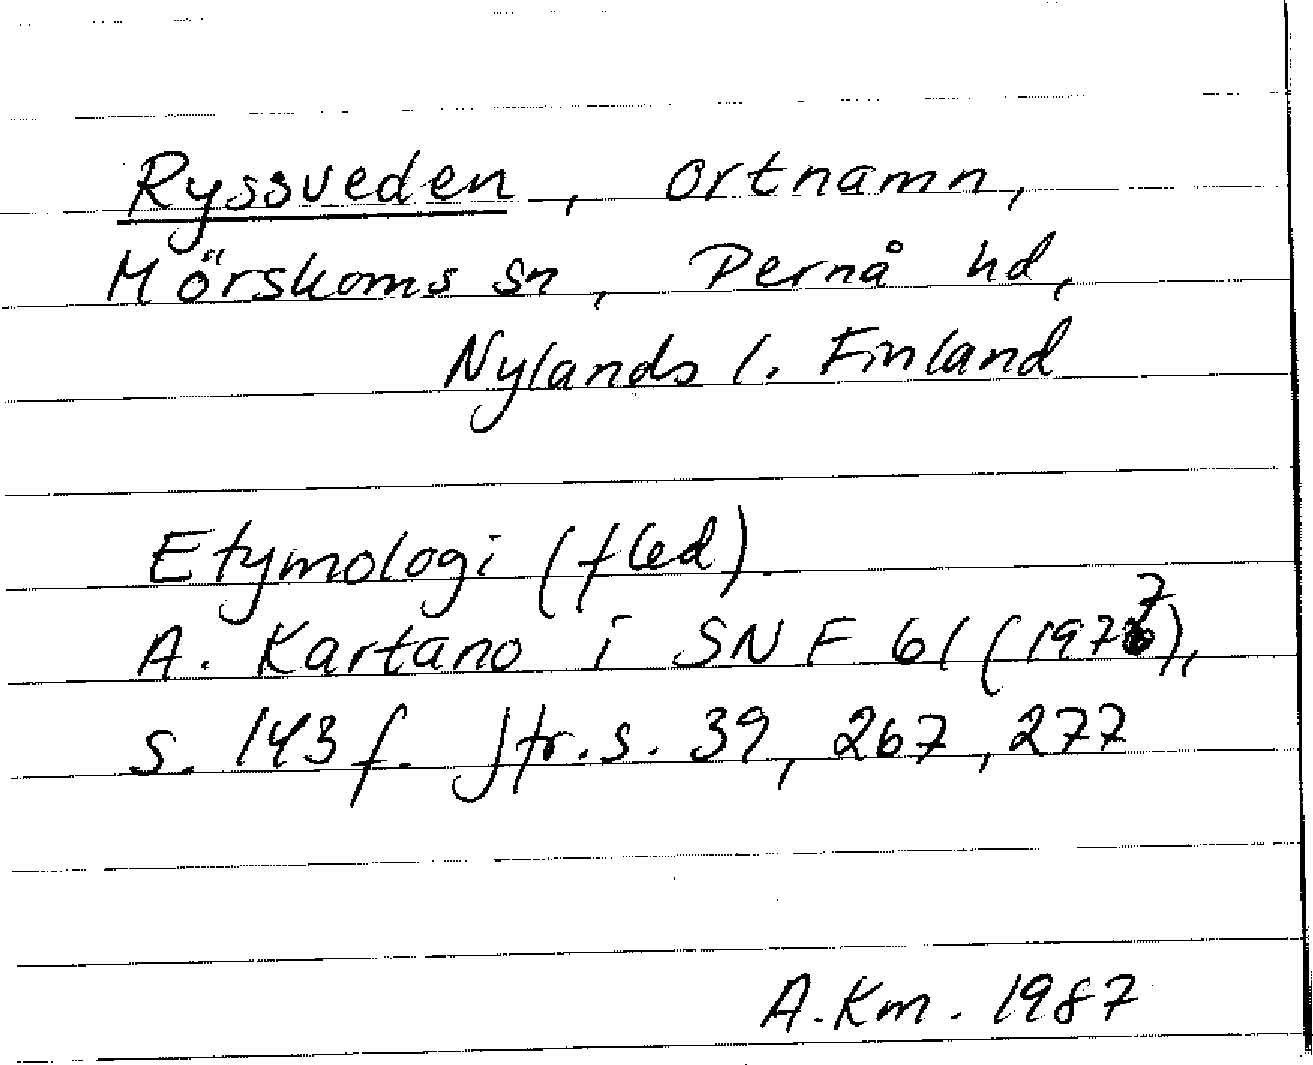 Ryssveden, ortnamn,
Mörskoms sn, Pernå hd,
Nylands l. Finland
Etymologi (fled)
A. Kartano i SNF 61 (1977),
s. 143 f. Jfr. s. 39, 267, 277
A. Km. 1987